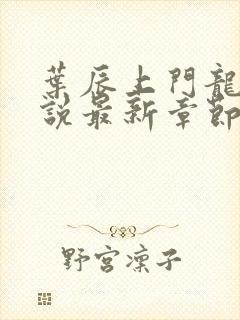 葉辰上門龍
說最新章節
野宮凜子